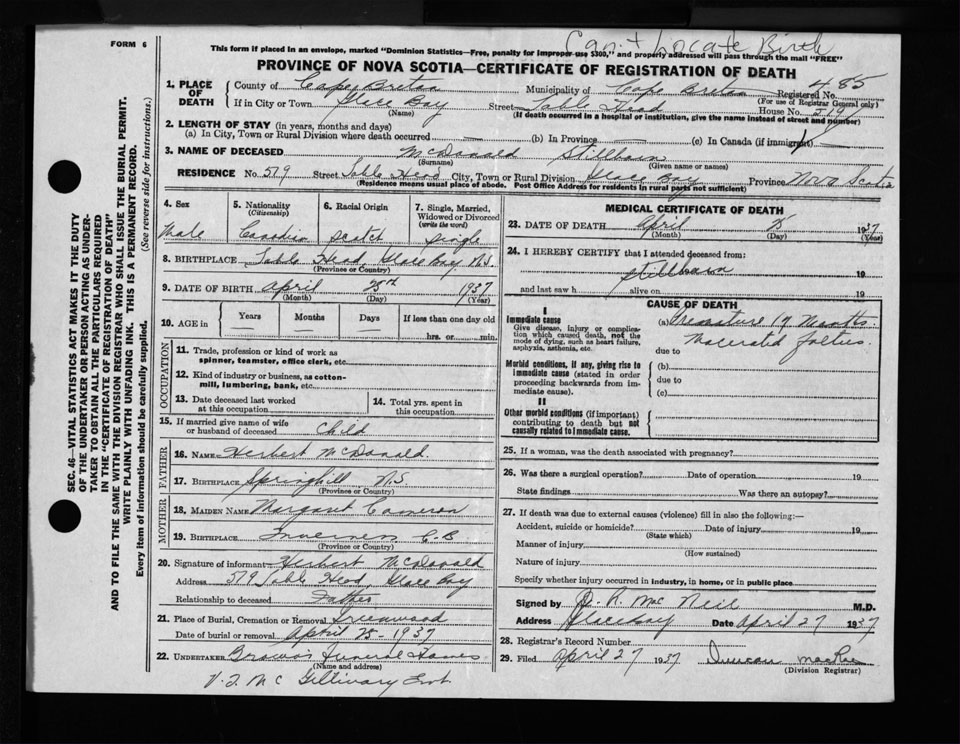 FORM 6
Can't Locate Birth
This form if placed in an envelope, marked "Dominion Statistics—Free, penalty for improper use $300," and properly addressed will pass through the mail "FREE"
PROVINCE OF NOVA SCOTIA—CERTIFICATE OF REGISTRATION OF DEATH
1. PLACE OF DEATH
County of Cape Breton Municipality of Cape Breton Registered No. 85
(For use of Registrar General only)
If in City or Town Glace Bay Street Table Head House No. 519
(Name) (If death occurred in a hospital or institution, give the name instead of street and number)
2. LENGTH OF STAY (in years, months and days)
(a) In City, Town or Rural Division where death occurred (b) In Province (c) In Canada (if immigrant)
3. NAME OF DECEASED McDonald Stillborn
(Surname) (Given name or names)
RESIDENCE No. 519 Street Table Head City, Town or Rural Division Glace Bay Province Nova Scotia
(Residence means usual place of abode. Post Office Address for residents in rural parts not sufficient)
4. Sex 5. Nationality (Citizenship) 6. Racial Origin 7. Single, Married, Widowed or Divorced (write the word)
Male Canadian Scotch Single
8. BIRTHPLACE Table Head, Glace Bay N.S.
(Province or Country)
9. DATE OF BIRTH April 25th 1937
(Month) (Day) (Year)
10. AGE in Years Months Days If less than one day old
hrs. or min.
OCCUPATION
11. Trade, profession or kind of work as spinner, teamster, office clerk, etc.
12. Kind of industry or business, as cotton-mill, lumbering, bank, etc.
13. Date deceased last worked at this occupation 14. Total yrs. spent in this occupation
15. If married give name of wife or husband of deceased Child
FATHER
16. NAME Herbert McDonald
17. BIRTHPLACE Springhill N.S.
(Province or Country)
MOTHER
18. MAIDEN NAME Margaret Cameron
19. BIRTHPLACE Inverness C.B
(Province or Country)
20. Signature of informant Herbert McDonald
Address 519 Table Head, Glace Bay
Relationship to deceased Father
21. Place of Burial, Cremation or Removal Greenwood
Date of burial or removal April 25-1937
22. UNDERTAKER Browns Funeral Homes
(Name and address)
MEDICAL CERTIFICATE OF DEATH
23. DATE OF DEATH April 25 1937
(Month) (Day) (Year)
24. I HEREBY CERTIFY that I attended deceased from:
Stillborn 19
and last saw h alive on 19
CAUSE OF DEATH
I
Immediate cause
Give disease, injury or complication which caused death, not the mode of dying, such as heart failure, asphyxia, asthenia, etc.
(a) Premature Months.
due to Macerated
Morbid conditions, if any, giving rise to immediate cause (stated in order proceeding backwards from immediate cause).
(b)
due to
(c)
II
Other morbid conditions (if important) contributing to death but not causally related to immediate cause.
25. If a woman, was the death associated with pregnancy?
26. Was there a surgical operation? Date of operation 19
State findings Was there an autopsy?
27. If death was due to external causes (violence) fill in also the following:—
Accident, suicide or homicide? Date of injury 19
(State which)
Manner of injury
(How sustained)
Nature of injury
Specify whether injury occurred in industry, in home, or in public place
Signed by Mac Neil M.D.
Address Glace Bay Date April 27 1937
28. Registrar's Record Number
29. Filed April 27 1937 Duncan MacRae
(Division Registrar)
SEC. 46—VITAL STATISTICS ACT MAKES IT THE DUTY
OF THE UNDERTAKER OR PERSON ACTING AS UNDER-
TAKER TO OBTAIN ALL THE PARTICULARS REQUIRED
IN THE "CERTIFICATE OF REGISTRATION OF DEATH"
AND TO FILE THE SAME WITH THE DIVISION REGISTRAR WHO SHALL ISSUE THE BURIAL PERMIT.
WRITE PLAINLY WITH UNFADING INK. THIS IS A PERMANENT RECORD.
Every item of information should be carefully supplied. (See reverse side for instructions.)